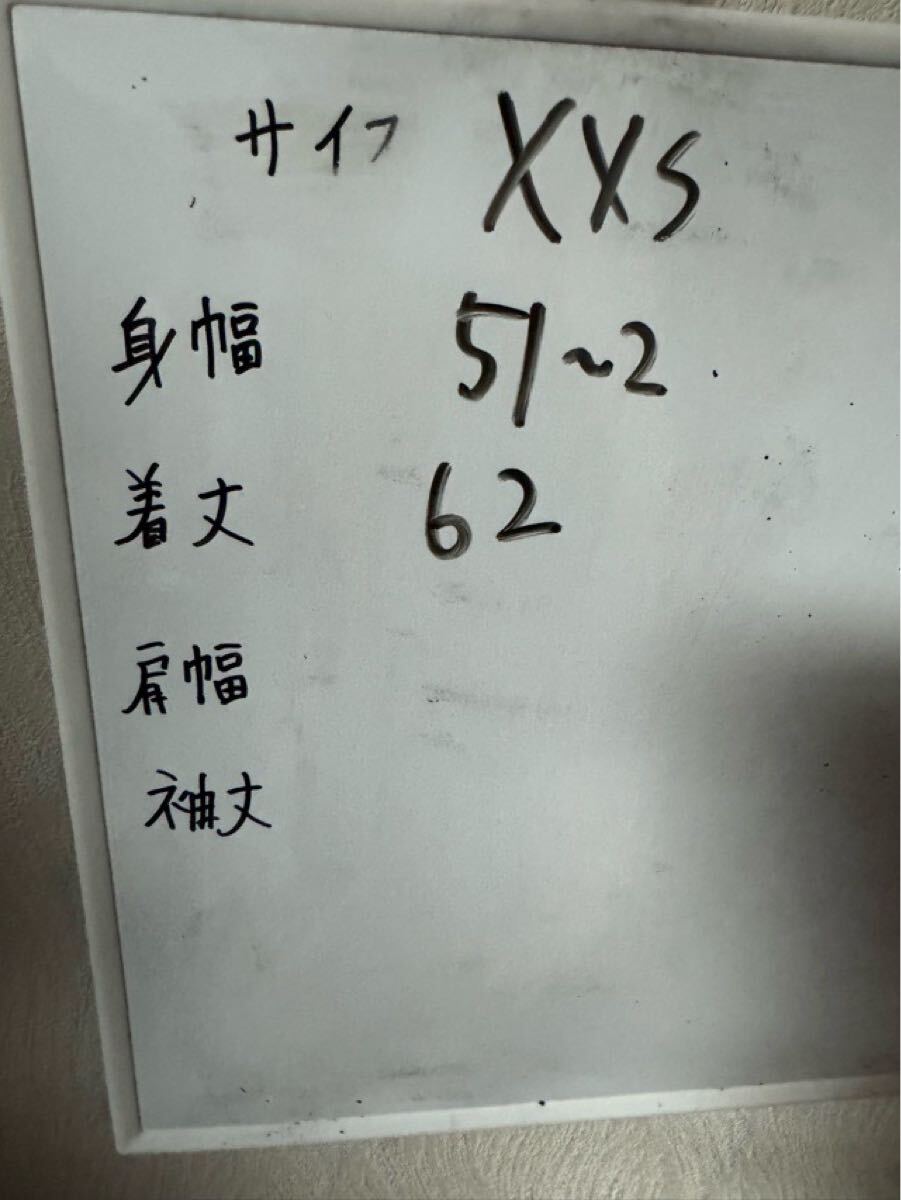 サイフ XXS
身幅 51~2
着丈 62
肩幅
袖丈